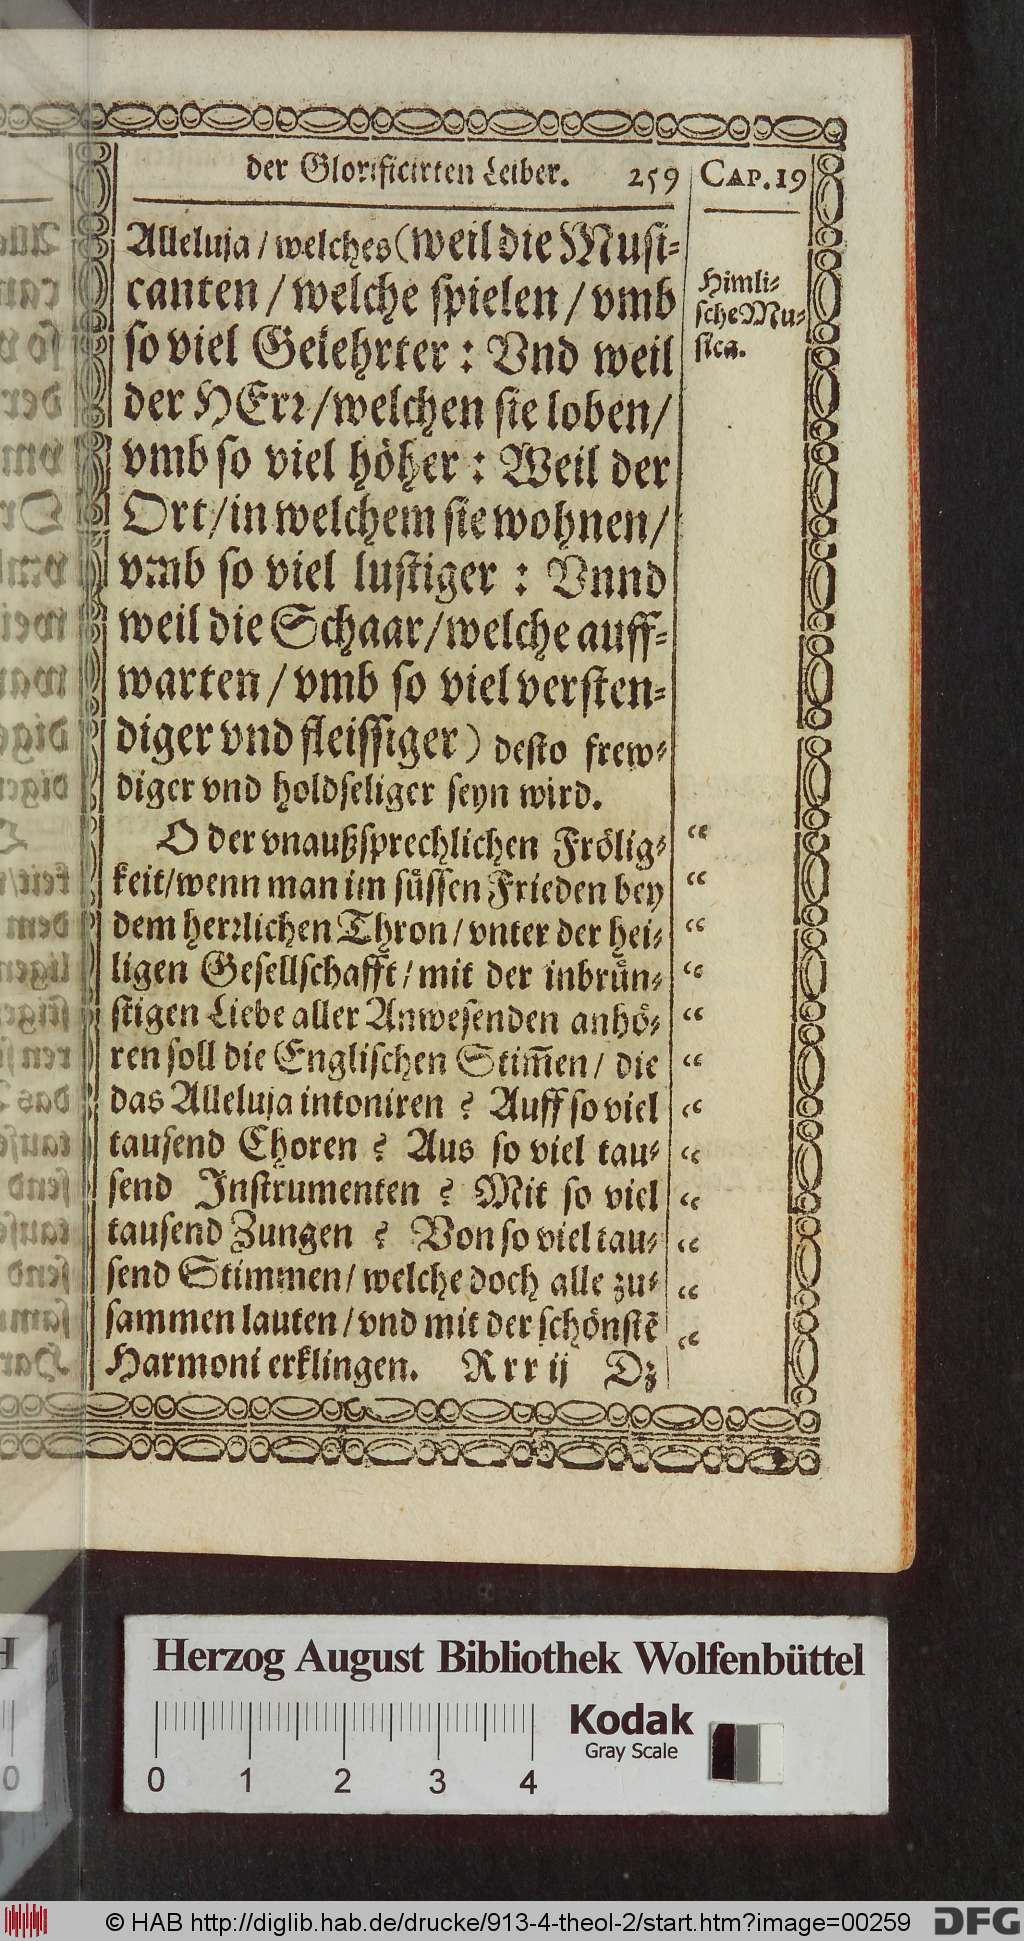 der Glorificirten Leiber. 259 CAP. 19
Alleluja / welches (weil die Musi=
canten / welche spielen / vmb
so viel Gelehrter : Vnd weil
der HErr / welchen sie loben /
vmb so viel höher : Weil der
Ort / in welchem sie wohnen /
vmb so viel lustiger : Vnnd
weil die Schaar / welche auff=
warten / vmb so viel versten=
diger vnd fleissiger) desto frew=
diger vnd holdseliger seyn wird.
Himli=
sche Mu=
sica.
O der vnaußsprechlichen Frölig= “
keit / wenn man im süssen Frieden bey “
dem herrlichen Thron / vnter der hei= “
ligen Gesellschafft / mit der inbrün= “
stigen Liebe aller Anwesenden anhö= “
ren soll die Englischen Stim̃en / die “
das Alleluja intoniren ? Auff so viel “
tausend Choren ? Aus so viel tau= “
send Instrumenten ? Mit so viel “
tausend Zungen ? Von so viel tau= “
send Stimmen / welche doch alle zu= “
sammen lauten / vnd mit der schönstẽ “
Harmoni erklingen. Rrr ij Dz
Herzog August Bibliothek Wolfenbüttel
Kodak
Gray Scale
0 1 2 3 4
© HAB http://diglib.hab.de/drucke/913-4-theol-2/start.htm?image=00259
DFG